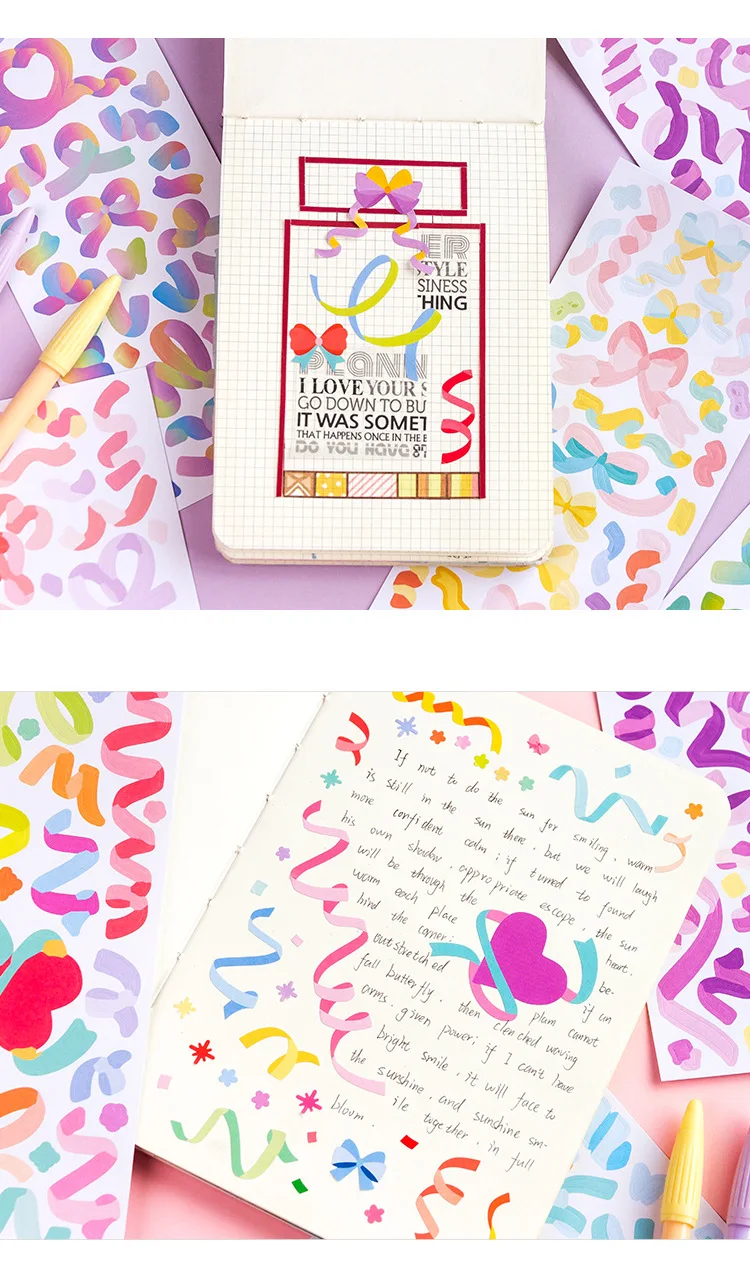 ER
STYLE
SINESS
THING
PEANN
I LOVE YOUR S
GO DOWN TO BU
IT WAS SOMET
THAT HAPPENS ONCE IN THE E
DO YOU HAVE
If not to do the sun for smiling, warm
is still in the sun there, but we will laugh
more confident calm; if turned to found
his own shadow, appropriate escape, the sun
will be through the heart,
warm each place be-
hind the corner; if an
outstretched plam cannot
fall butterfly, then clenched waving
arms, given power; if I can't have
bright smile, it will face to
the sunshine, and sunshine sm-
ile together, in full
bloom.